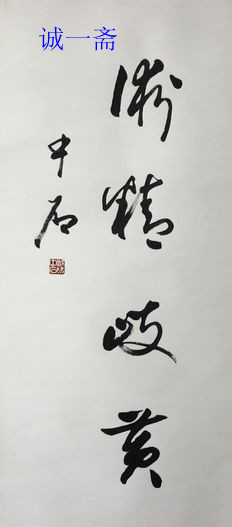 诚一斋
術精岐黄
中石